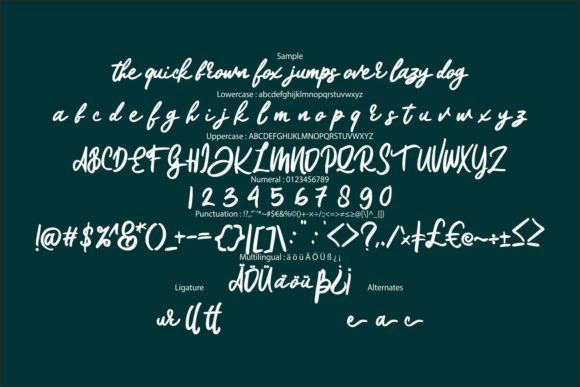 Sample
the quick brown fox jumps over lazy dog
Lowercase : abcdefghijklmnopqrstuvwxyz
a b c d e f g h i j k l m n o p q r s t u v w x y z
Uppercase : ABCDEFGHIJKLMNOPQRSTUVWXYZ
ABCDEFGHIJKLMNOPQRSTUVWXYZ
Numeral : 0123456789
1 2 3 4 5 6 7 8 9 0
Punctuation :
!@#$%^&*()_+-={}|[]\:";'<>?,./×‡£€@~÷±≤≥
Multilingual : ä ö ü Ä Ö Ü ß ¿ ¡
ÄÖÜäöüß¿¡
Ligature Alternates
ur ll tt e a c